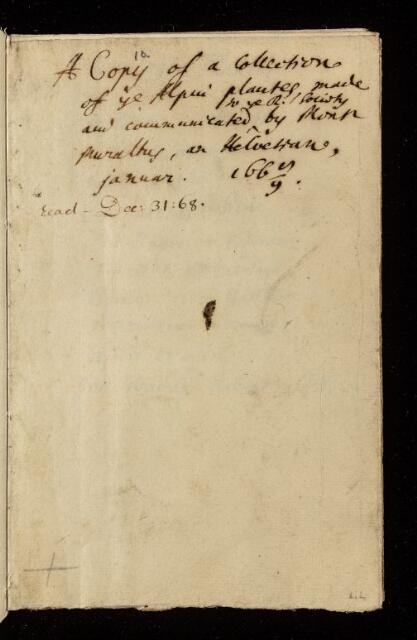 10.
A Copy of a Collection
of ye Alpin plantes, made
to ye R. Society
and communicated by Monsr
Muraltus, an Helvetian,
januar. 166 8/9.
read - Dec: 31:68.